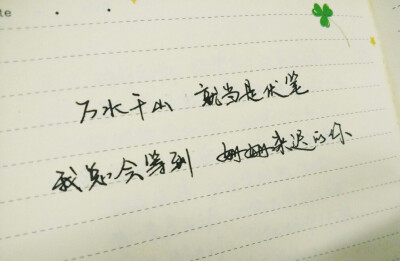 te
万水千山 就当是伏笔
我总会等到 姗姗来迟的你